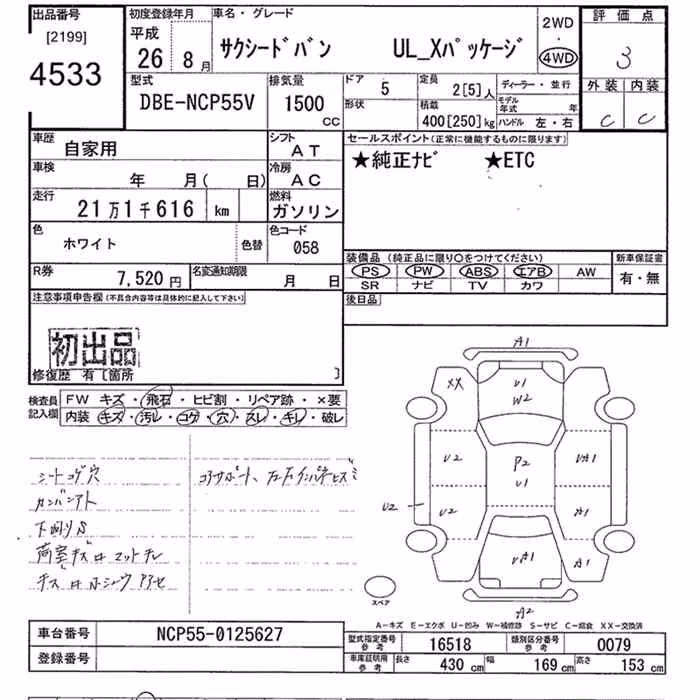 出品番号
[2199]
4533
初度登録年月
平成
26 8月
車名・グレード
サクシードバン UL_Xパッケージ
2WD
・
4WD
評価点
3
外装 内装
C C
型式
DBE-NCP55V
排気量
1500
CC
ドア 5
形状
定員 2[5]人
積載 400[250]kg
ディーラー・並行
モデル年式 年
ハンドル 左・右
車歴 自家用
シフト AT
車検 年 月( 日)
冷房 AC
走行 21万1千616 km
燃料 ガソリン
色 ホワイト 色替
色コード 058
R券 7,520円
名変通知期限 月 日
セールスポイント(正常に機能するものに限ります)
★純正ナビ ★ETC
装備品(純正品に限り○をつけてください)
PS PW ABS エアB AW
SR ナビ TV カワ
新車保証書
有・無
後日品
注意事項申告欄(不具合内容等は具体的に記入して下さい)
初出品
修復歴 有[箇所 ]
検査員記入欄
FW キズ・飛石・ヒビ割・リペア跡・×要
内装 キズ・汚レ・コゲ・穴・スレ・キレ・破レ
シートコゲ穴
カンバンアト
下回りS
コアサポート、左右インパネビス
A1
XX
U1
W2
U2
P2
U1
UA1
U2
U2
A1
UA1
A1
A2
スペア
A-キズ E-エクボ U-凹み W-補修跡 S-サビ C-腐食 XX-交換済
車台番号 NCP55-0125627
登録番号
型式指定番号 参考 16518
類別区分番号 参考 0079
車庫証明用 参考 長さ 430cm 幅 169cm 高さ 153cm